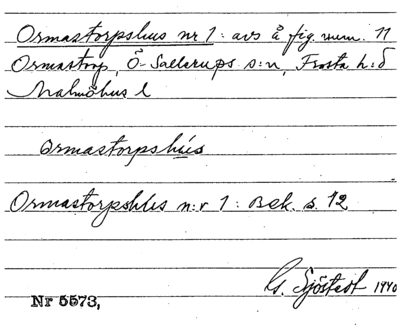 Ormastorpshus nr 1: avs å fig. num. 11
Ormastorp, Ö. Sallerups s:n, Frosta h:d
Malmöhus l
Ormastorpshus
Ormastorpshus n:r 1: Bek. s. 12
G. Sjöstedt 1940
Nr 5573,